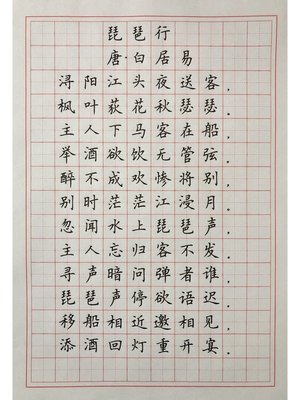 琵琶行
唐·白居易
浔阳江头夜送客，
枫叶荻花秋瑟瑟．
主人下马客在船，
举酒欲饮无管弦．
醉不成欢惨将别，
别时茫茫江浸月．
忽闻水上琵琶声，
主人忘归客不发．
寻声暗问弹者谁，
琵琶声停欲语迟．
移船相近邀相见，
添酒回灯重开宴．